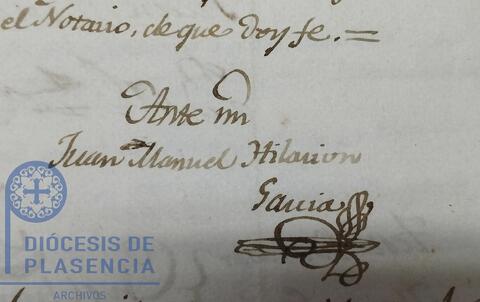 el Notario, de que doy fe. =
Ante mi
Juan Manuel Hilarion
Garcia
DIÓCESIS DE
PLASENCIA
ARCHIVOS